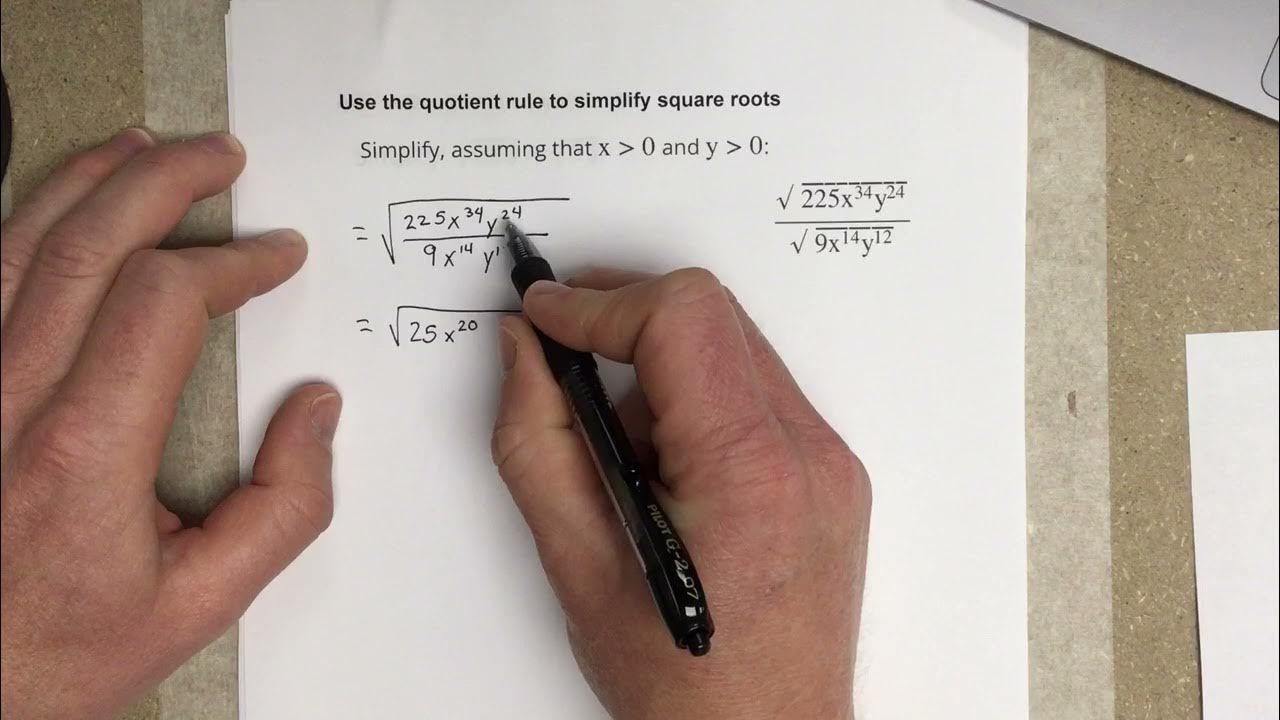 Use the quotient rule to simplify square roots
Simplify, assuming that x > 0 and y > 0:
√225x³⁴y²⁴
√9x¹⁴y¹²
= √225x³⁴y²⁴
9x¹⁴y¹
= √25x²⁰
PILOT G-2 07